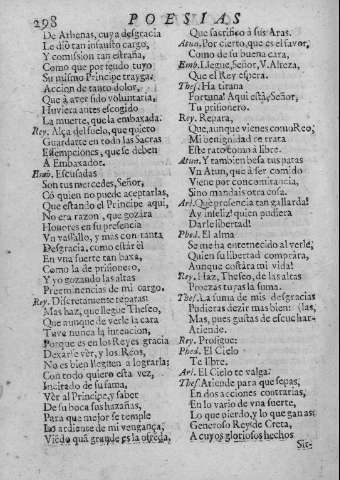 298 POESIAS
De Athenas, cuya desgracia
Le dió tan infausto cargo,
Y comission tan estraña,
Como que por feudo tuyo
Su mismo Principe trayga:
Accion de tanto dolor,
Que à aver sido voluntaria,
Huviera antes escogido
La muerte, que la embaxada:
Rey. Alça del suelo, que quiero
Guardarte en todo las sacras
Essempciones, que se deben
A Embaxador.
Emb. Escusadas
Son tus mercedes, Señor,
Có quien no puede aceptarlas,
Que estando el Principe aqui,
No era razon, que gozára
Honores en su presencia
Un vassallo, y mas con tanta
Desgracia, como estár él
En vna suerte tan baxa,
Como la de prisionero,
Y yo gozando las altas
Preeminencias de mi cargo.
Rey. Discretamente reparas:
Mas haz, que llegue Theseo,
Que aunque de verle la cara
Tuve nunca la intencion,
Porque es en los Reyes gracia
Dexarse vèr, y los Reos,
No es bien lleguen à lograrla;
Con todo quiero esta vez,
Incitado de su fama,
Vèr al Principe, y saber
De su boca sus hazañas,
Para que mejor se temple
Las ardiente de mi vengança,
Viédo quã grande es la ofréda,
Que sacrifico à sus Aras.
Atun. Por cierto, que es el favor,
Como de su buena cara,
Emb. Llegue, Señor, V. Alteza,
Que el Rey espera.
Thes. Ha tirana
Fortuna! Aqui està, Señor,
Tu prisionero.
Rey. Repara,
Que, aunque vienes como Reo,
Mi benignidad te trata
Este rato como à libre.
Atun. Y tambien besa tus patas
Vn Atun, que à ser comido
Viene por concomitancia,
Sino mandais otra cosa.
Ari. Que presencia tan gallarda!
Ay infeliz! quien pudiera
Darle libertad!
Phed. El alma
Se me ha enternecido al verle,
Quien su libertad comprára,
Aunque costára mi vida!
Rey. Haz, Theseo, de las altas
Proezas tuyas la suma.
Thes. La suma de mis desgracias
Pudieras dezir mas bien: (las,
Mas, pues gustas de escuchar-
Atiende.
Rey. Prosigue:
Phed. El Cielo
Te libre.
Ari. El Cielo te valga:
Thes. Atiende para que sepas,
En dos acciones contrarias,
En lo vario de vna suerte,
Lo que pierdo, y lo que ganas:
Generoso Rey de Creta,
A cuyos gloriosos hechos
Sir-